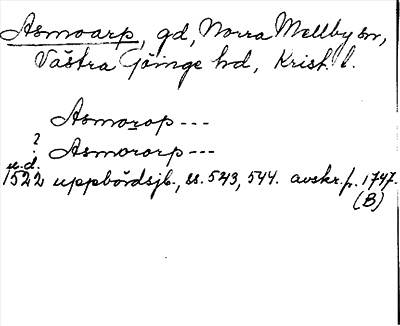 Asmoarp, gd, Norra Mellby sn,
Västra Göinge hd, Krist. l.
Asmorop ---
?
Asmororp ---
u.d.
1522 uppbördsjb., ss. 543, 544. avskr. fr. 1747.
(B)